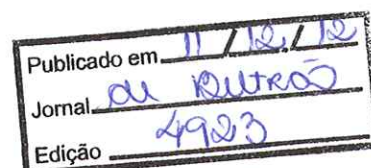 Publicado em 11 / 12 / 12
Jornal de Beltrão
Edição 4923